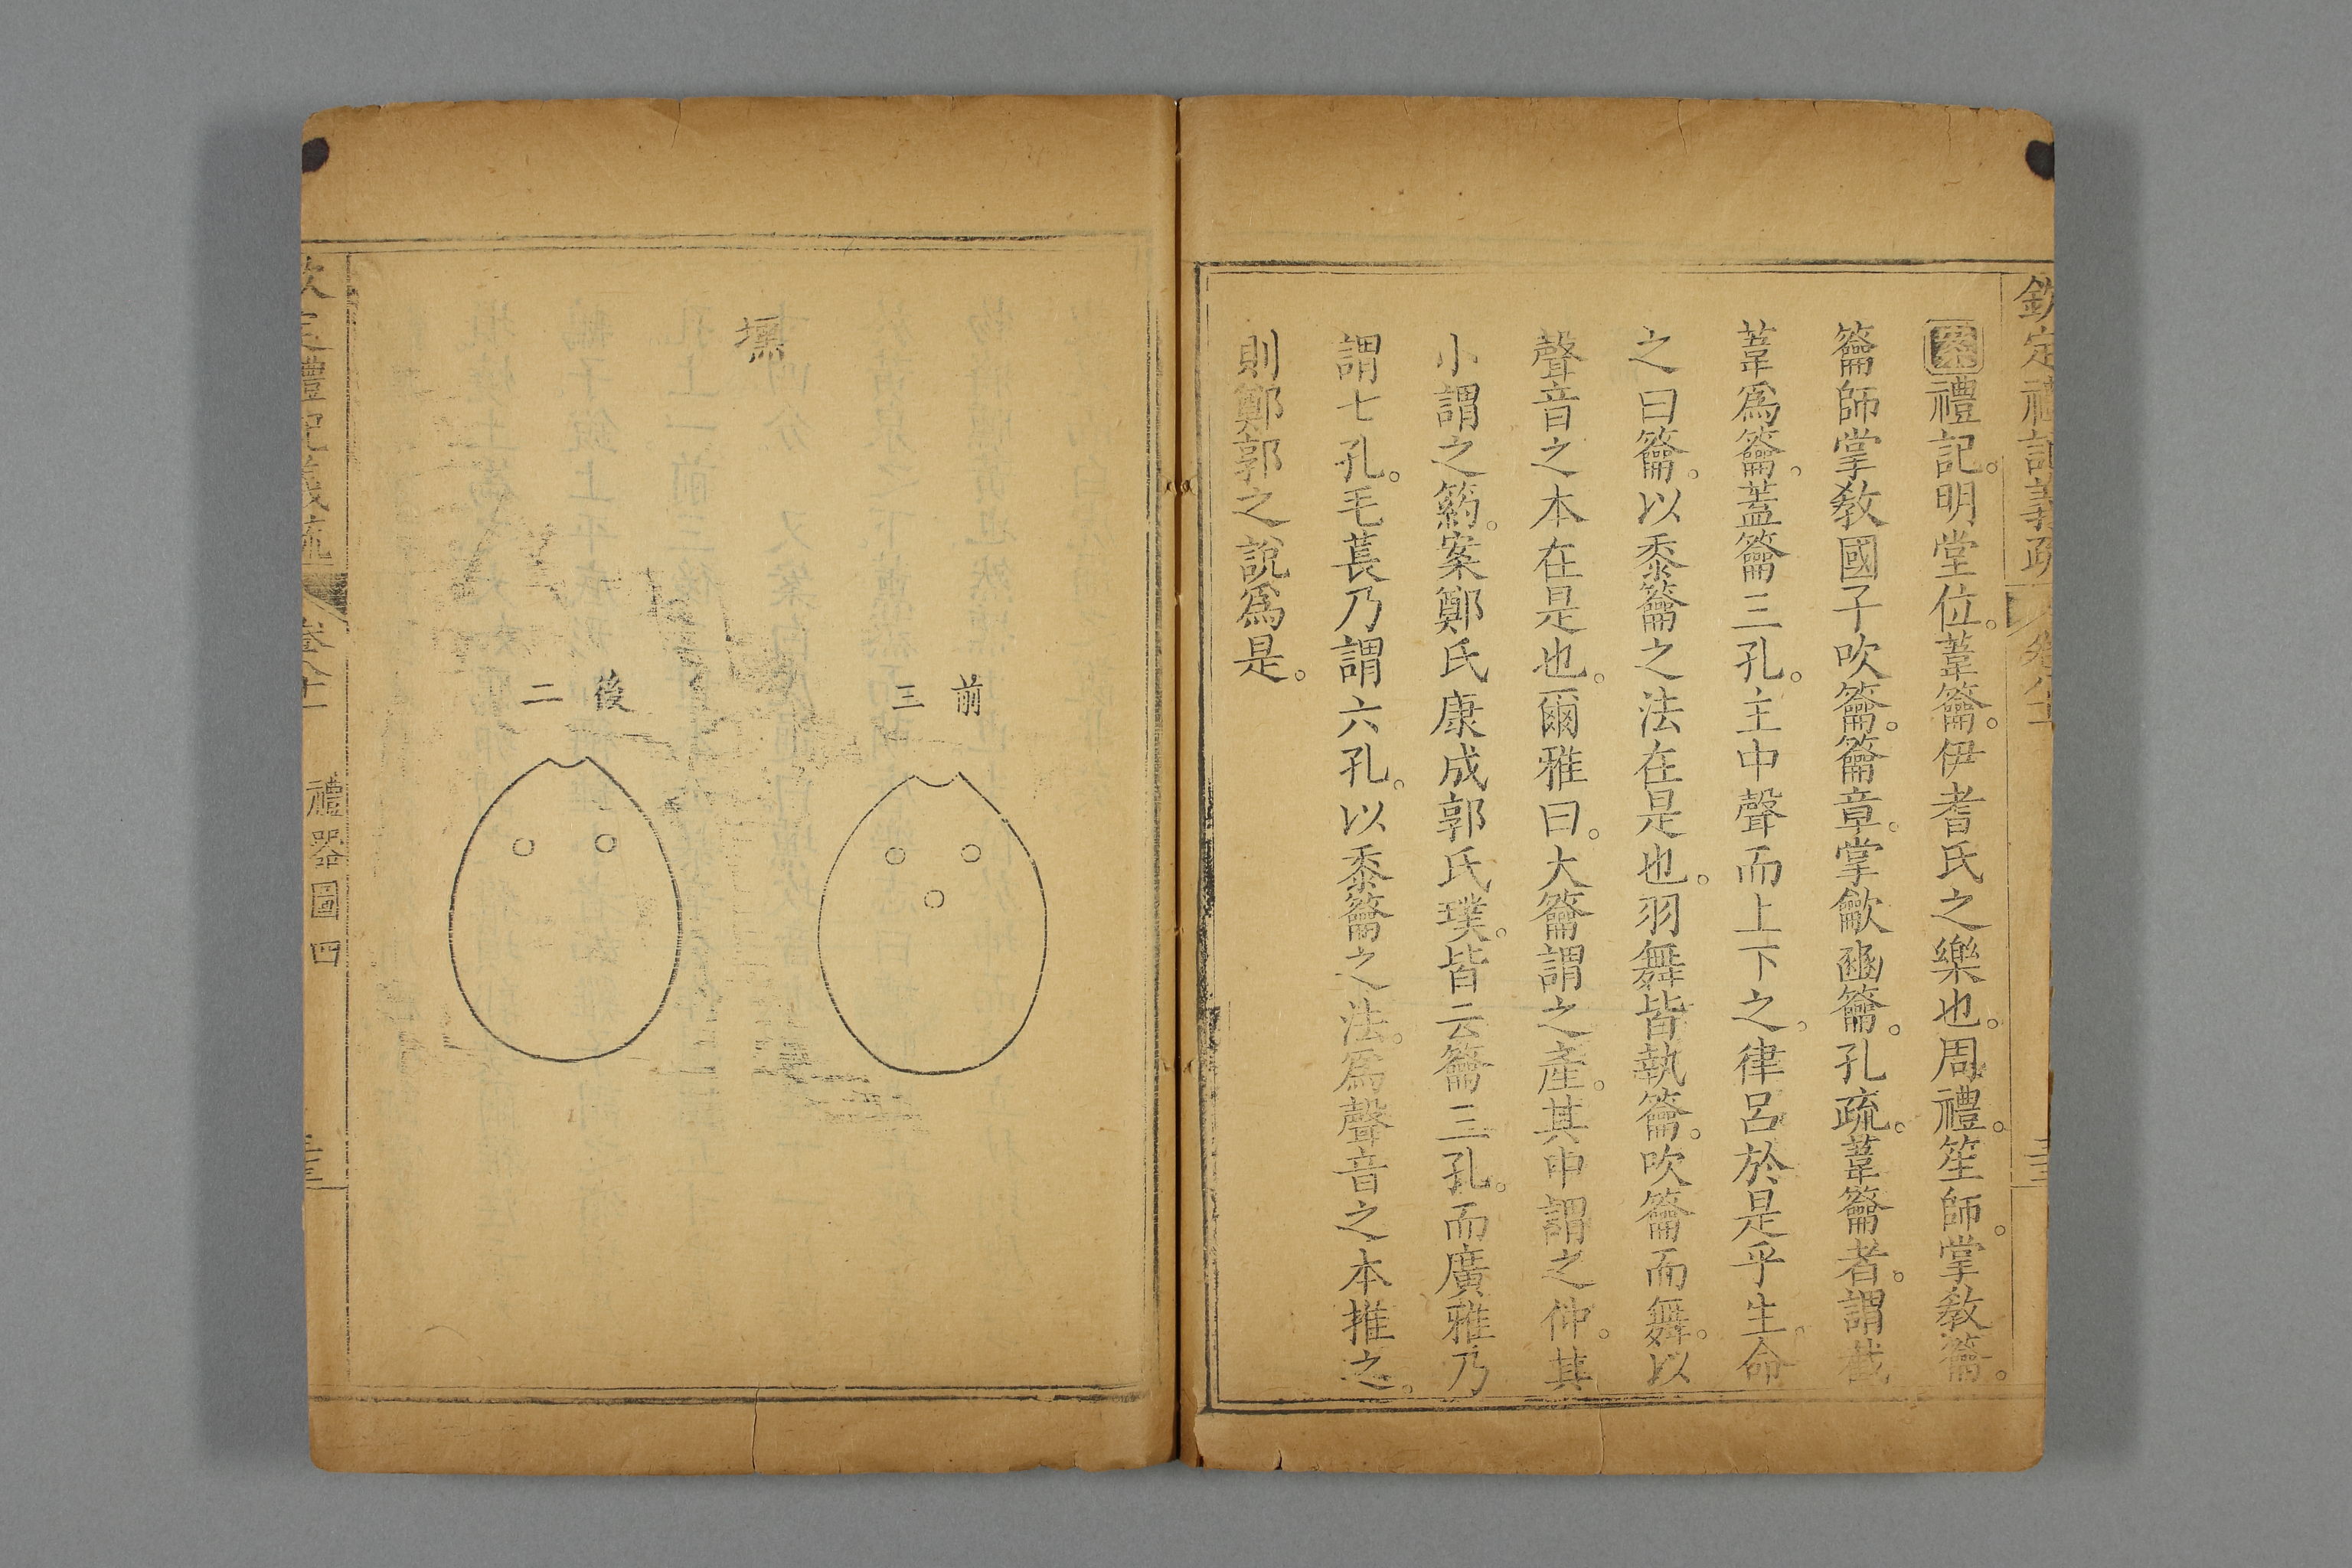 欽定禮記義疏 卷八十一
案禮記。明堂位。葦籥。伊耆氏之樂也。周禮。笙師。掌敎籥。
籥師掌敎國子吹籥。籥章。掌龡豳籥。孔疏。葦籥者。謂截
葦爲籥。蓋籥三孔。主中聲而上下之。律呂於是乎生。命
之曰籥。以黍籥之法在是也。羽舞皆執籥。吹籥而舞。以
聲音之本在是也。爾雅曰。大籥謂之產。其中謂之仲。其
小謂之箹。案鄭氏康成郭氏璞。皆云籥三孔。而廣雅乃
謂七孔。毛萇乃謂六孔。以黍籥之法。爲聲音之本推之。
則鄭郭之說爲是。
壎
前三
後二
欽定禮記義疏 卷八十一 禮器圖四